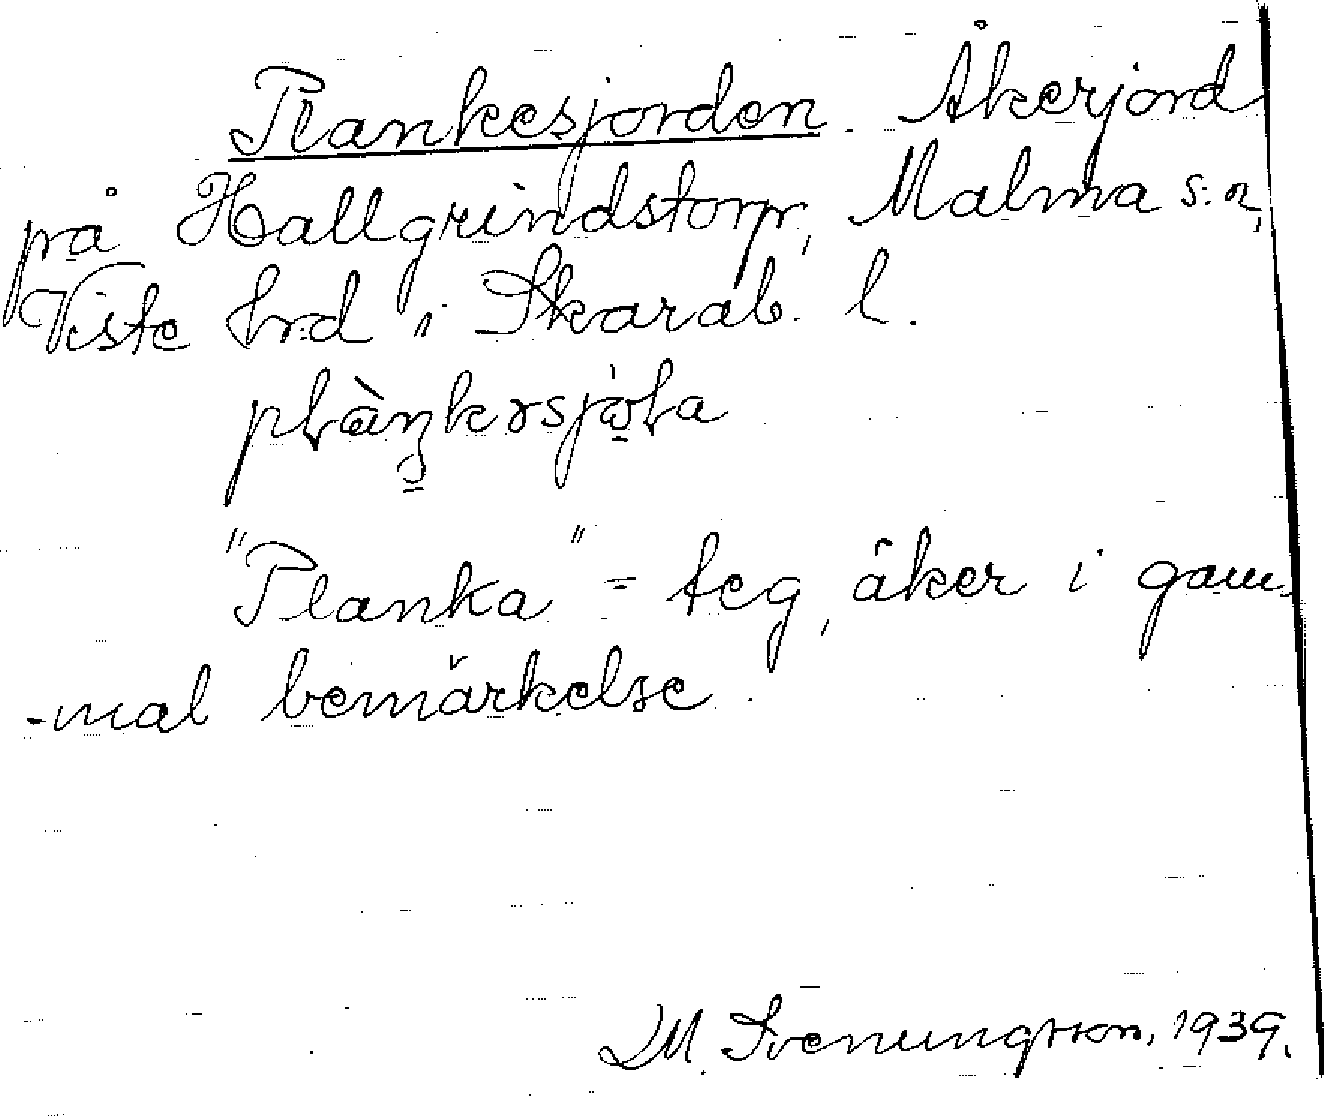 Plankesjorden. Åkerjord
på Hallgrindstorp, Malma s:n,
Viste hrd i Skarab. l.
"Planka" = teg, åker i gam-
-mal bemärkelse.
M. Svenungsson, 1939.